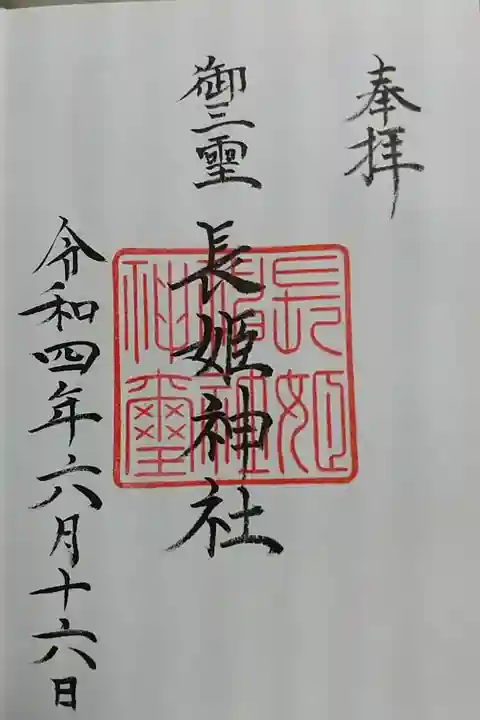 奉拝
御三霊
長姫神社
長姫神社神璽
令和四年六月十六日